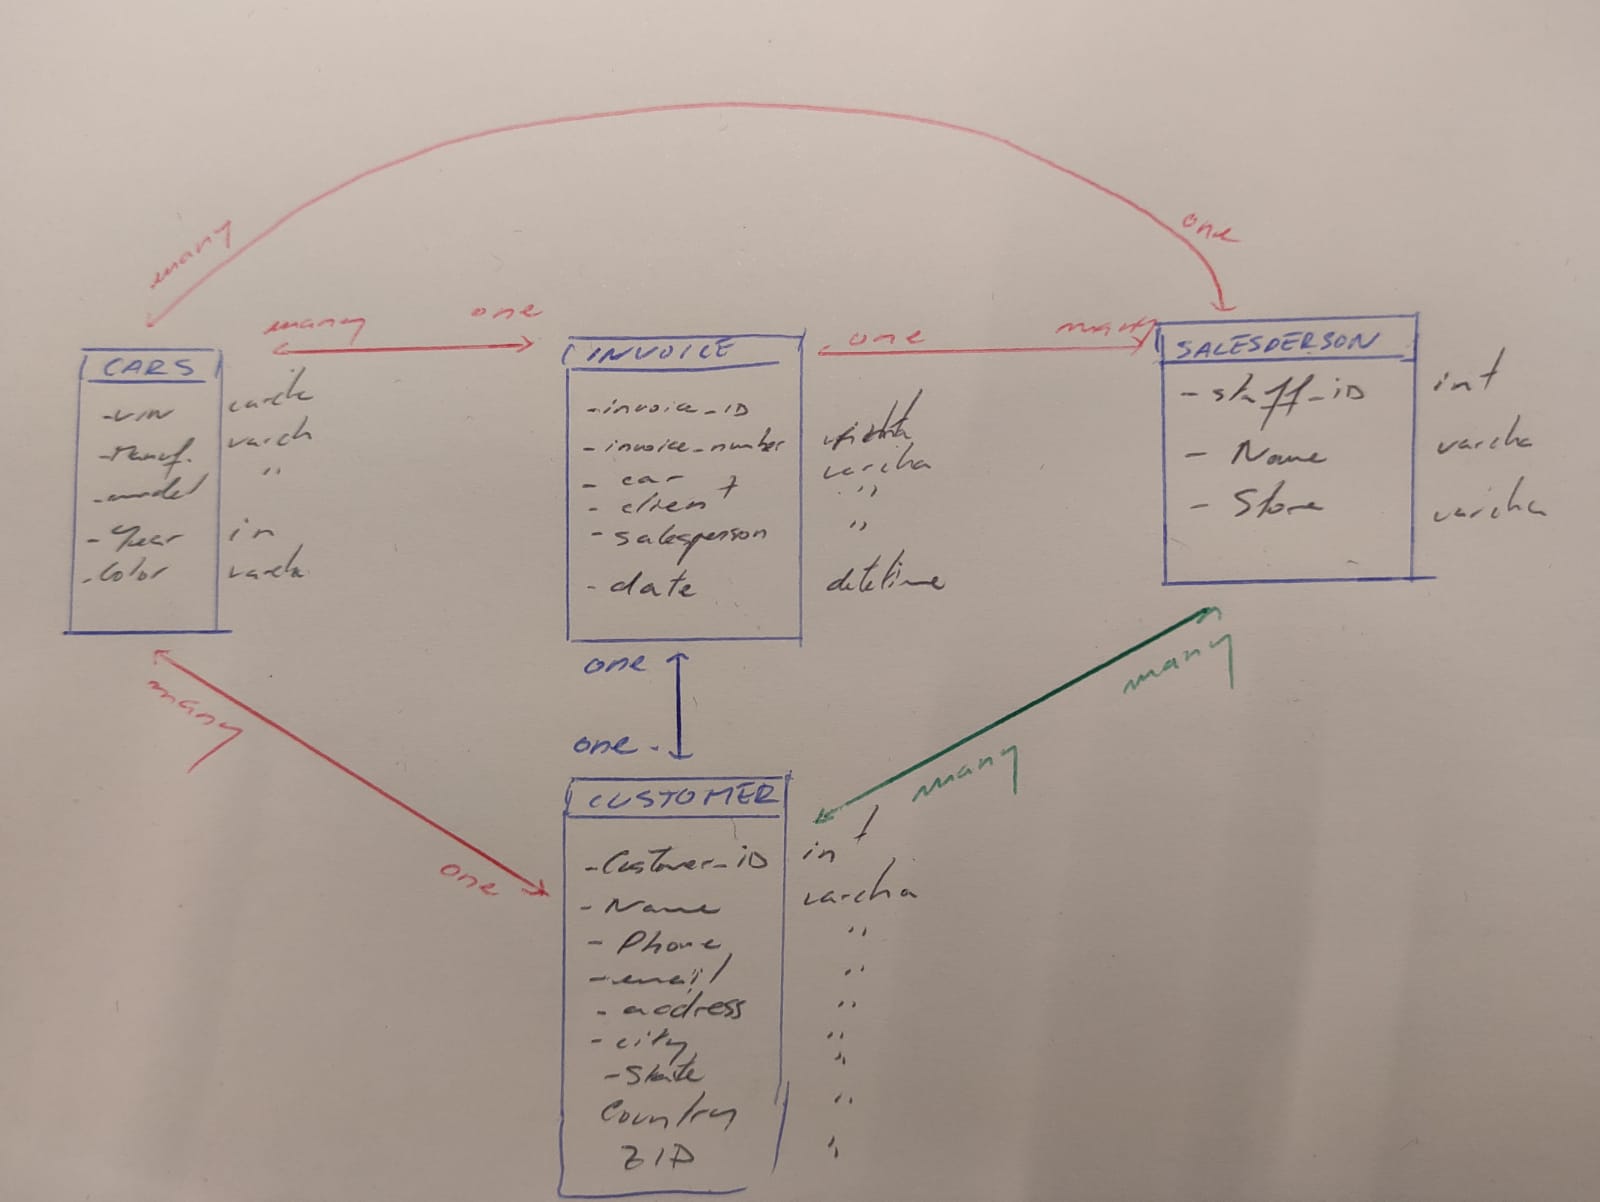 many
one
many one
one many
CARS
-VIN
varch
-Manuf.
varch
-model
"
-Year in
-Color varcha
INVOICE
-invoice_ID
-invoice_number
- car varcha
- client "
- salesperson "
- date datetime
SALESPERSON
- staff_iD int
- Name varcha
- Store varcha
one
one
many
one
many
many
CUSTOMER
-Customer_iD int
- Name varcha
- Phone "
- email "
- address "
- city "
- State "
Country "
ZIP "